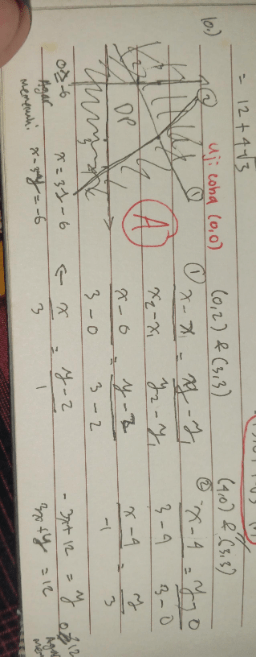 = 12 + 4√3
10.)
uji coba (0,0)
②
①
DP
A
(0,2) & (3,3)
① x - x₁ / x₂ - x₁ = y - y₁ / y₂ - y₁
x - 0 / 3 - 0 = y - 2 / 3 - 2
x / 3 = y - 2 / 1
← x = 3y - 6
0 ≥ -6
x - 3y = -6
Agar
memenuhi
(4,0) & (3,3)
② x - 4 / 3 - 4 = y - 0 / 3 - 0
x - 4 / -1 = y / 3
-3x + 12 = y
3x + y = 12
Agar